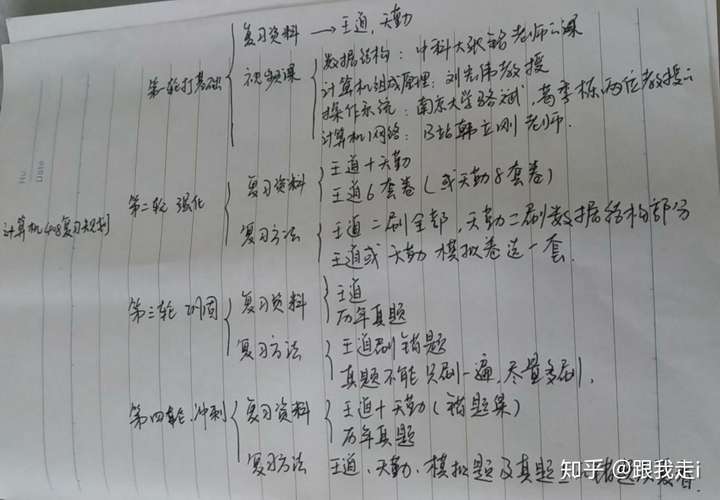 复习资料 → 王道、天勤
第一轮打基础
视频课
数据结构：中科大张铭老师の课
计算机组成原理：刘宏伟教授
操作系统：南京大学骆斌，葛季栋两位教授の
计算机网络：B站韩立刚老师.
第二轮 强化
复习资料
王道+天勤
王道6套卷（或天勤8套卷）
计算机408复习规划
复习方法
王道二刷全部，天勤二刷数据结构部分
王道或天勤模拟卷选一套.
第三轮 巩固
复习资料
王道
历年真题
复习方法
王道刷错题
真题不能只刷一遍，尽量多刷，
第四轮.冲刺
复习资料
王道+天勤（错题集）
历年真题
复习方法
王道、天勤、模拟题及真题
知乎 @跟我走i